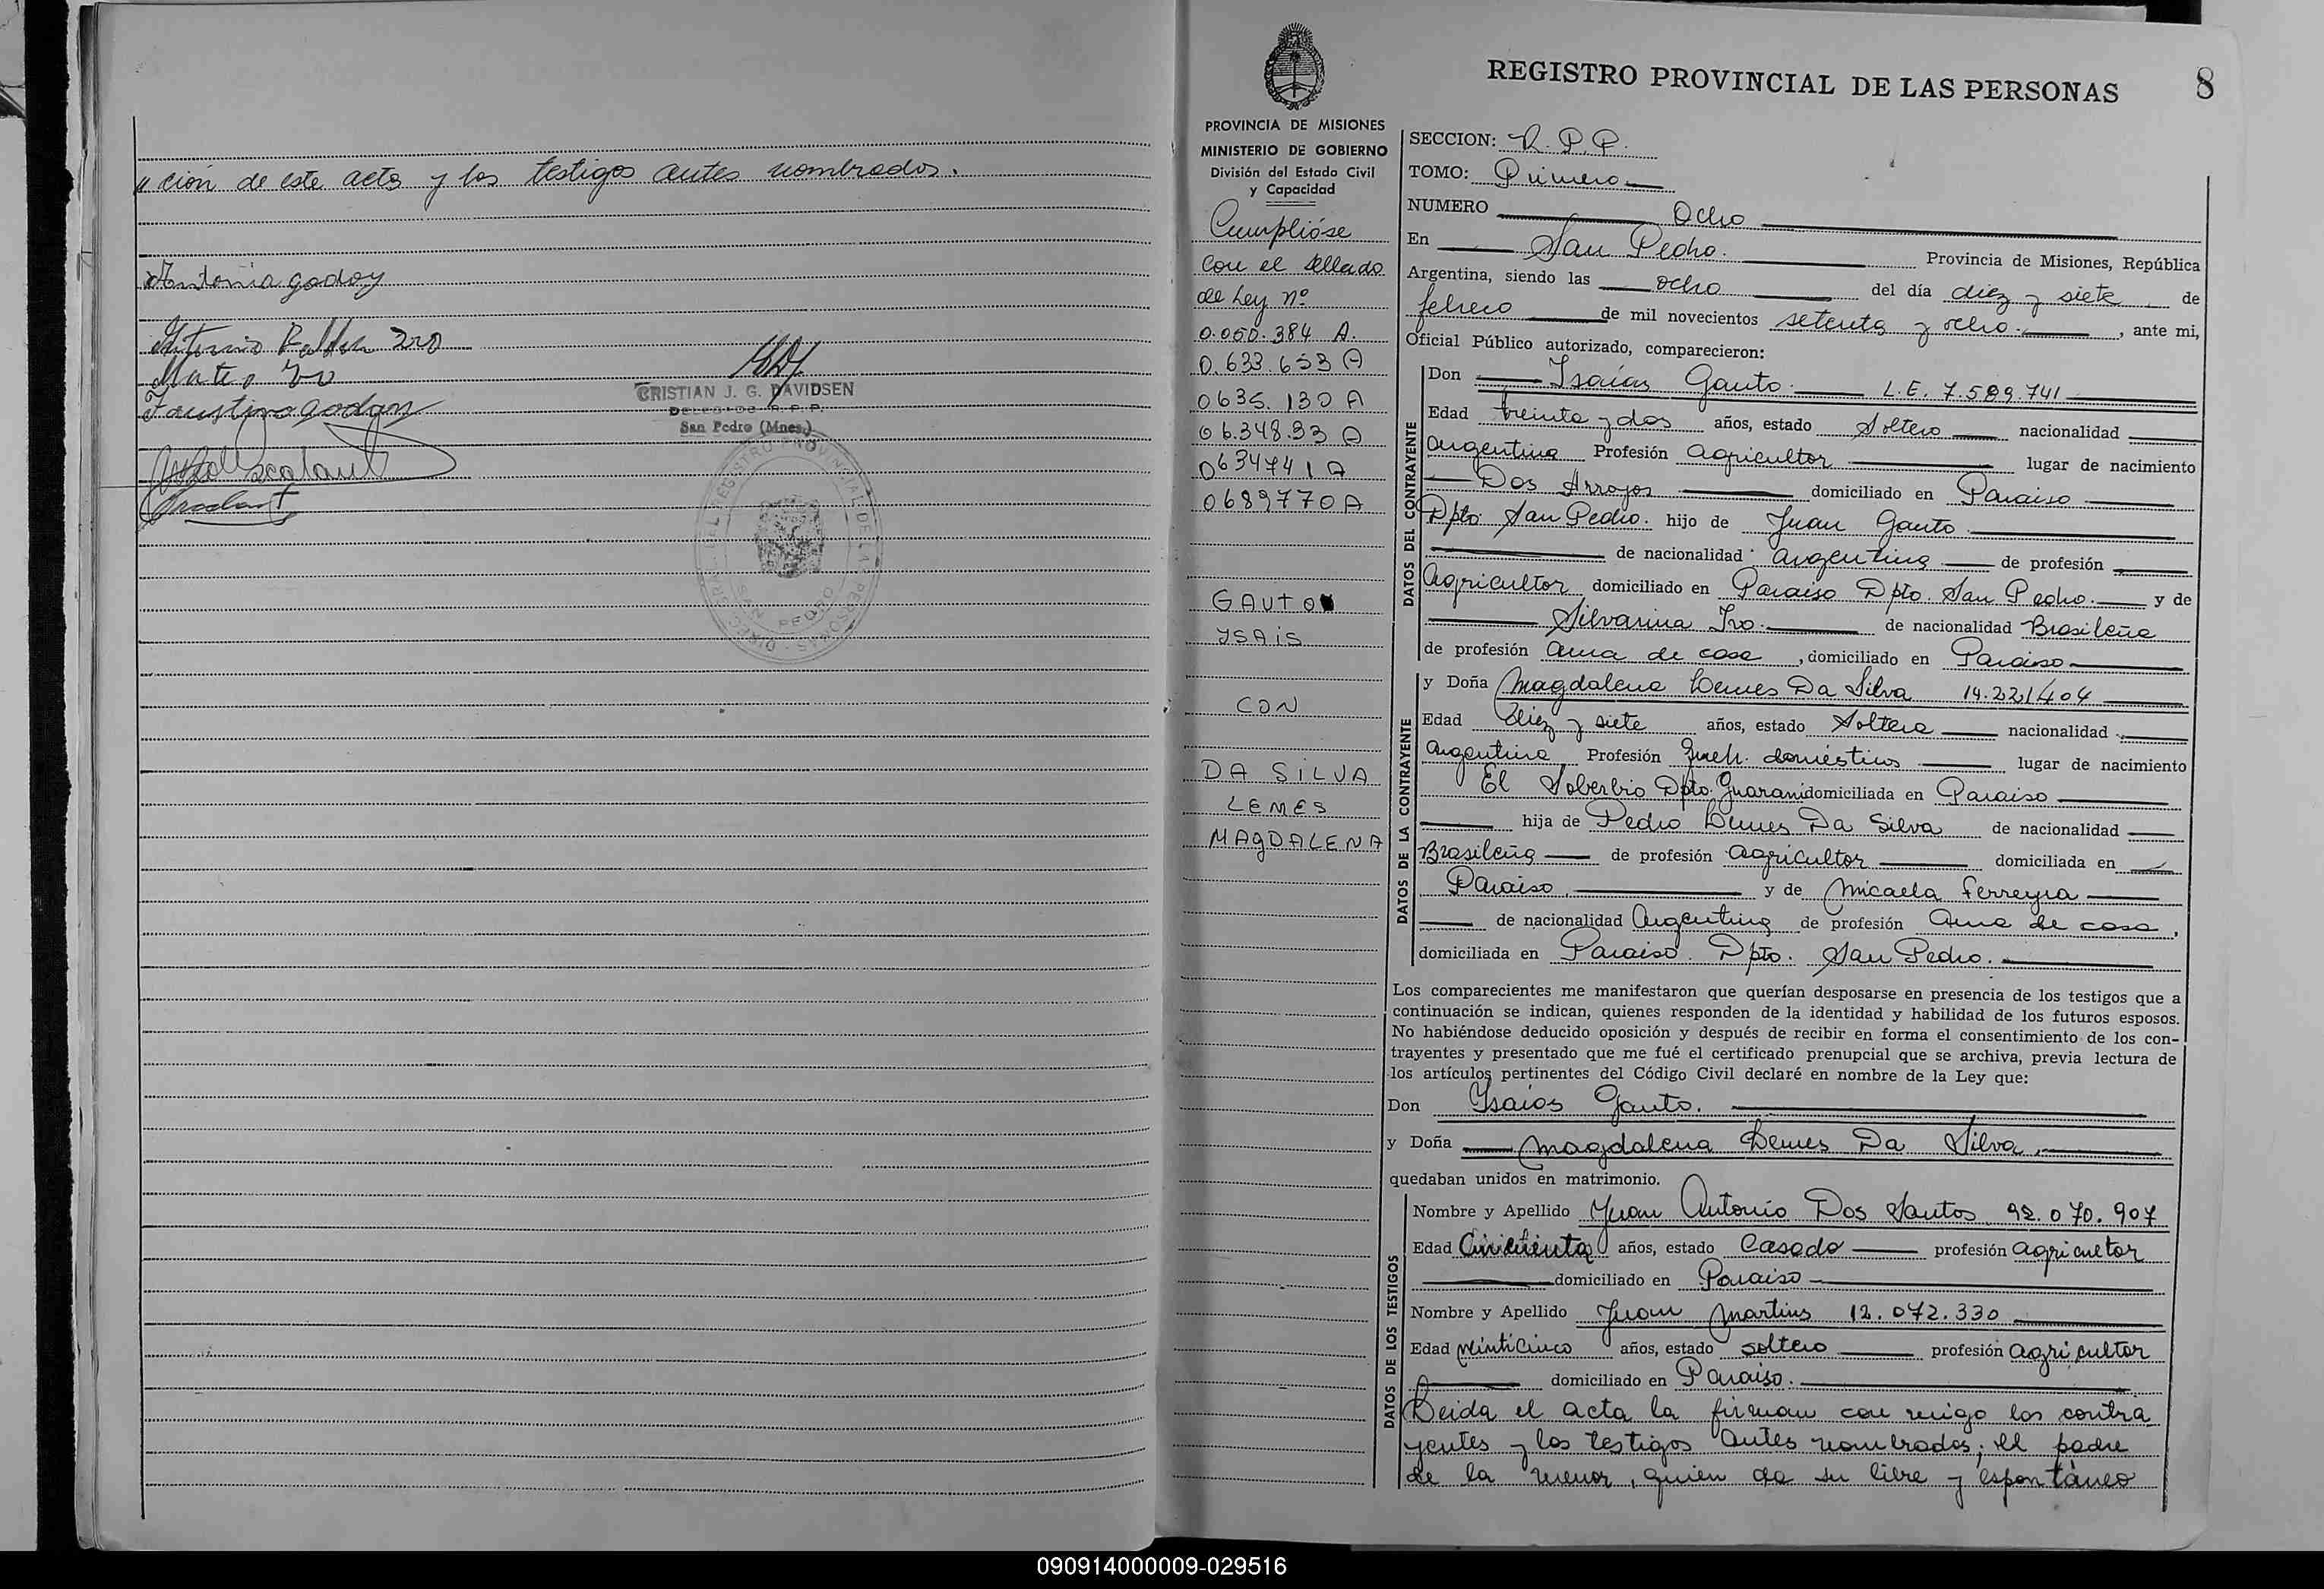 "ción de este acto y los testigos antes nombrados.
Antonia godoy
Mateo
Faustino godoy
CRISTIAN J. G. DAVIDSEN
DELEGADO R.P.P.
San Pedro (Mnes.)
SAN PEDRO
8
REGISTRO PROVINCIAL DE LAS PERSONAS
PROVINCIA DE MISIONES
MINISTERIO DE GOBIERNO
División del Estado Civil
y Capacidad
Cumplióse
con el sellado
de Ley nº
0.050.384 A.
0.633.653 A
0635.130 A
06.348.33 A
0634741 A
0689770A
GAUTO
YSAIS
CON
DA SILVA
LEMES
MAGDALENA
SECCION: R.P.P.
TOMO: Primero
NUMERO Ocho
En San Pedro. Provincia de Misiones, República
Argentina, siendo las ocho del día diez y siete de
febrero de mil novecientos setenta y ocho. , ante mi,
Oficial Público autorizado, comparecieron:
DATOS DEL CONTRAYENTE
Don Isaías Gauto. L.E. 7.589.741
Edad treinta y dos años, estado Soltero nacionalidad
argentina Profesión agricultor lugar de nacimiento
Dos Arroyos domiciliado en Paraiso
Dpto. San Pedro. hijo de Juan Gauto
de nacionalidad argentina de profesión
agricultor domiciliado en Paraiso Dpto. San Pedro. y de
Silvarina Ivo. de nacionalidad Brasileña
de profesión ama de casa , domiciliado en Paraiso
DATOS DE LA CONTRAYENTE
y Doña Magdalena Lemes Da Silva 14.221404
Edad diez y siete años, estado Soltera nacionalidad
argentina Profesión Queh. domésticos lugar de nacimiento
El Soberbio Dpto. Guarani domiciliada en Paraiso
hija de Pedro Lemes Da Silva de nacionalidad
Brasileña de profesión agricultor domiciliada en
Paraiso y de Micaela Ferreyra
de nacionalidad Argentina de profesión Ama de casa ,
domiciliada en Paraiso. Dpto. San Pedro.
Los comparecientes me manifestaron que querían desposarse en presencia de los testigos que a
continuación se indican, quienes responden de la identidad y habilidad de los futuros esposos.
No habiéndose deducido oposición y después de recibir en forma el consentimiento de los con-
trayentes y presentado que me fué el certificado prenupcial que se archiva, previa lectura de
los artículos pertinentes del Código Civil declaré en nombre de la Ley que:
Don Ysaias Gauto.
y Doña Magdalena Lemes Da Silva.
quedaban unidos en matrimonio.
DATOS DE LOS TESTIGOS
Nombre y Apellido Juan Antonio Dos Santos 92.070.907
Edad Cincuenta años, estado Casado profesión agricultor
domiciliado en Paraiso
Nombre y Apellido Juan Martins 12.072.330
Edad veinticinco años, estado soltero profesión agricultor
domiciliado en Paraiso.
Leida el acta la firman con migo los contra
yentes y los testigos antes nombrados; el padre
de la menor, quien da su libre y espontáneo
090914000009-029516